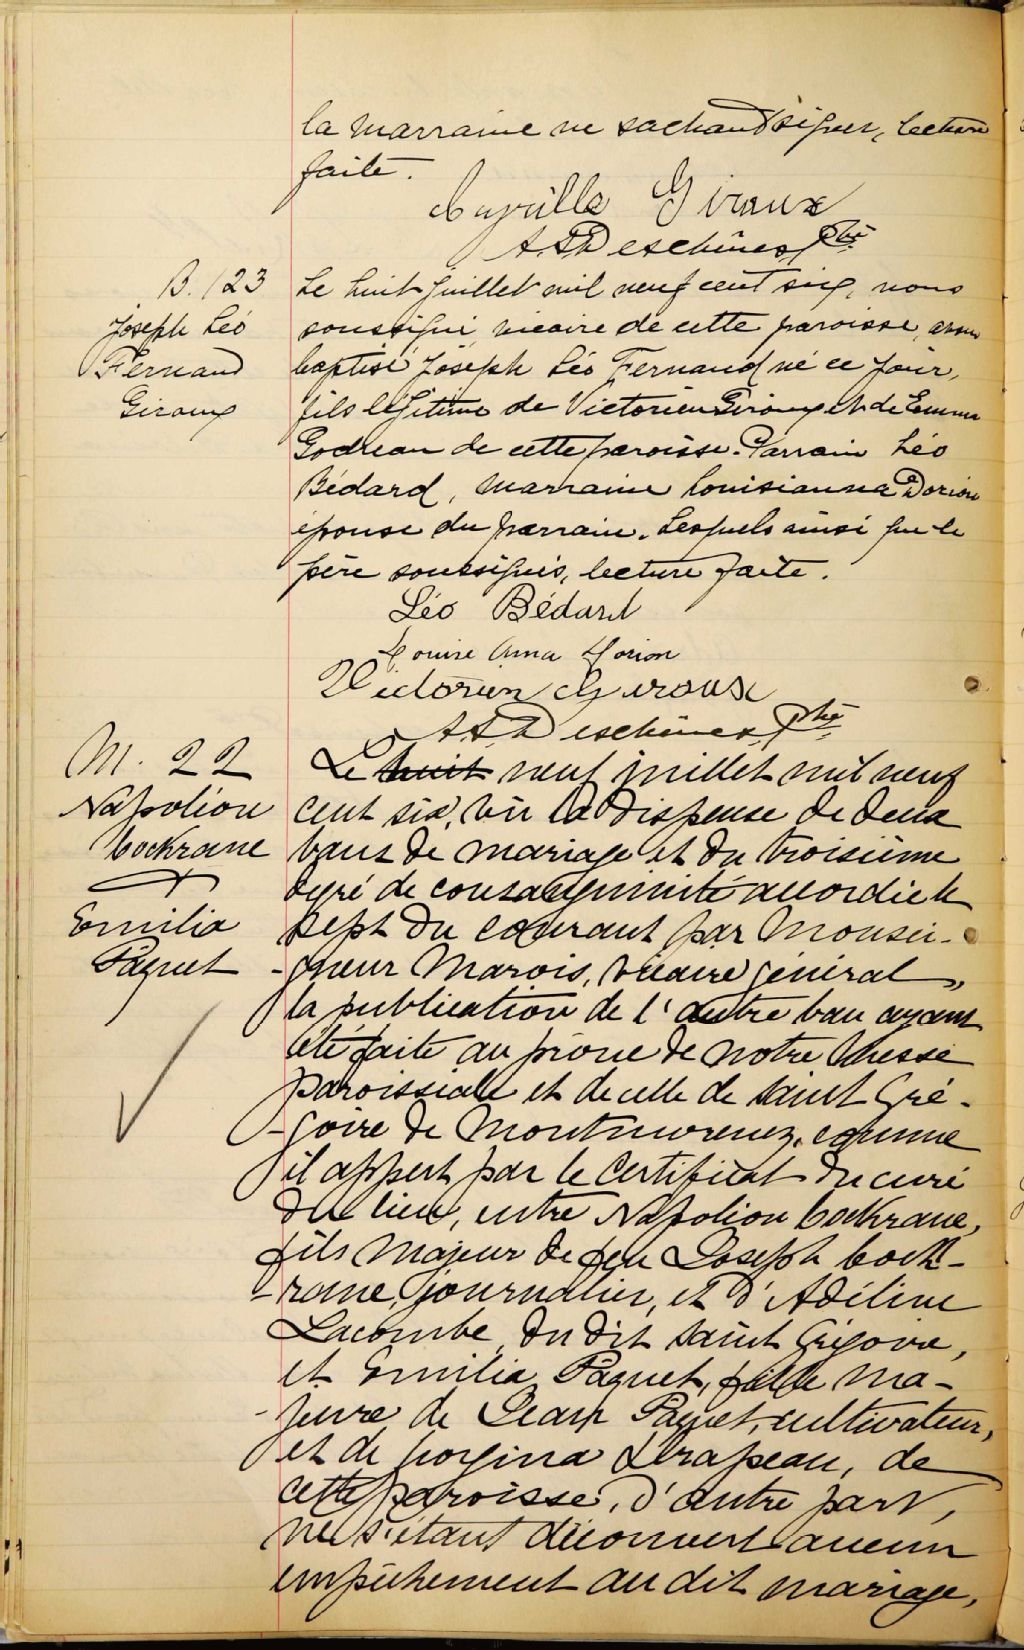 la marraine ne sachant signer, lecture
faite.
Cyrille Giroux
A. Deschênes Ptre
B. 123
Joseph Léo
Fernand
Giroux
Le huit juillet mil neuf cent six, nous
soussigné vicaire de cette paroisse, avons
baptisé Joseph Léo Fernand né ce jour,
fils légitime de Victorien Giroux et de Emma
Godreau de cette paroisse. Parrain Léo
Bédard, marraine Louisianna Dorion
épouse du parrain. Lesquels ainsi que le
père soussignés, lecture faite.
Léo Bédard
Louise Anna Dorion
Victorien Giroux
Deschênes Ptre
M. 22
Napoléon
Cockrane
&
Emilia
Paquet
Le huit neuf juillet mil neuf
cent six, vu la dispense de deux
bans de mariage et du troisième
degré de consanguinité accordée le
sept du courant par Monsei-
-gneur Marois, vicaire général,
la publication de l'autre ban ayant
été faite au prône de notre Messe
paroissiale et de celle de saint Gré-
-goire de Montmorency, comme
il appert par le certificat du curé
du lieu, entre Napoléon Cockrane,
fils majeur de feu Joseph Cock-
-rane, journalier, et d'Adéline
Lacombe, du dit saint Grégoire,
et Emilia Paquet, fille ma-
-jeure de Jean Paquet, cultivateur,
et de Georgina Drapeau, de
cette paroisse, d'autre part,
ne s'étant découvert aucun
empêchement au dit mariage,